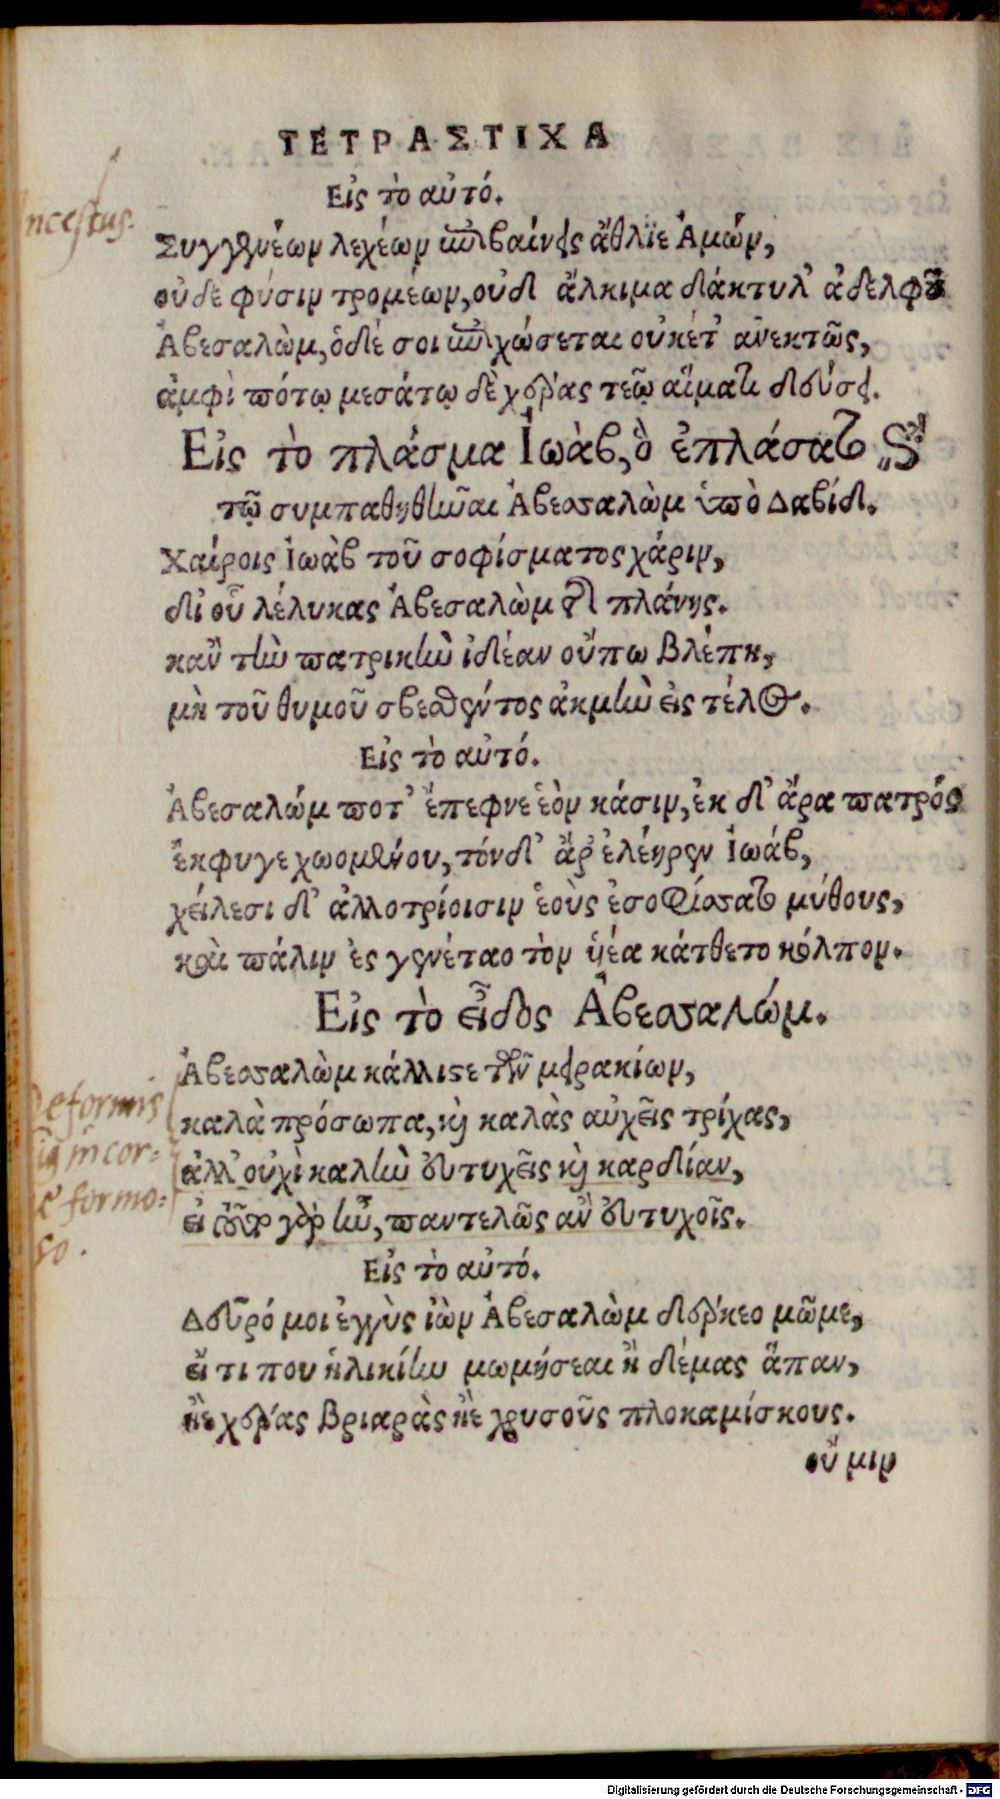 ΤΕΤΡΑΣΤΙΧΑ
Εἰς τὸ αὐτό.
Incestus.
Συγγενέων λεχέων ἐπιβαίνεις ἄθλιε Ἀμών,
οὐδὲ φύσιν τρομέων, οὐδ' ἄλκιμα δάκτυλ' ἀδελφοῦ
Ἀβεσαλὼμ, ὁ δέ σοι ἐπιχώσεται οὐκέτ' ἀνεκτῶς,
ἀμφὶ πότῳ μεσάτῳ δὲ χέρας τεῷ αἵματι δεύσει.
Εἰς τὸ πλάσμα Ἰωὰβ, ὃ ἐπλάσατο διὰ
τῷ συμπαθηθῆναι Ἀβεσσαλὼμ ὑπὸ Δαβίδ.
Χαίροις Ἰωὰβ τοῦ σοφίσματος χάριν,
δι' οὗ λέλυκας Ἀβεσαλὼμ τῆς πλάνης.
κἂν τὴν πατρικὴν ἰδέαν οὔπω βλέπῃ,
μὴ τοῦ θυμοῦ σβεσθέντος ἀκμὴν εἰς τέλος.
Εἰς τὸ αὐτό.
Ἀβεσαλώμ ποτ' ἔπεφνε ἑὸν κάσιν, ἐκ δ' ἄρα πατρός
ἔκφυγε χωομένου, τόνδ' ἄρ' ἐλέηρεν Ἰωάβ,
χείλεσι δ' ἀλλοτρίοισιν ἑοὺς ἐσοφίσσατο μύθους,
καὶ πάλιν ἐς γενέταο τὸν ὑέα κάτθετο κόλπον.
Εἰς τὸ εἶδος Ἀβεσσαλώμ.
Ἀβεσσαλὼμ κάλλιστε τῶν μειρακίων,
Deformis
καλὰ πρόσωπα, καὶ καλὰς αὐχεῖς τρίχας,
in cor-
ἀλλ' οὐχὶ καλὴν εὐτυχεῖς καὶ καρδίαν,
e formo-
εἰ γὰρ ἦν, παντελῶς ἂν εὐτυχοῖς.
so.
Εἰς τὸ αὐτό.
Δεῦρό μοι ἐγγὺς ἰὼν Ἀβεσαλὼμ δέρκεο μῶμε,
εἴ τι που ἡλικίην μωμήσεαι ἢ δέμας ἅπαν,
ἠὲ χέρας βριαρὰς ἠὲ χρυσοῦς πλοκαμίσκους.
οὔ μιν
Digitalisierung gefördert durch die Deutsche Forschungsgemeinschaft - DFG